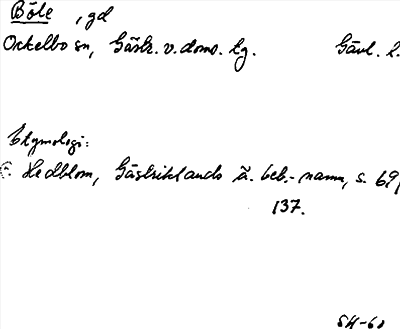 Böle, gd
Ockelbo sn, Gästr. v. doms. tg. Gävl. l.
Etymologi:
F. Hedblom, Gästriklands ä. beb.-namn, s. 69,
137.
SH-60